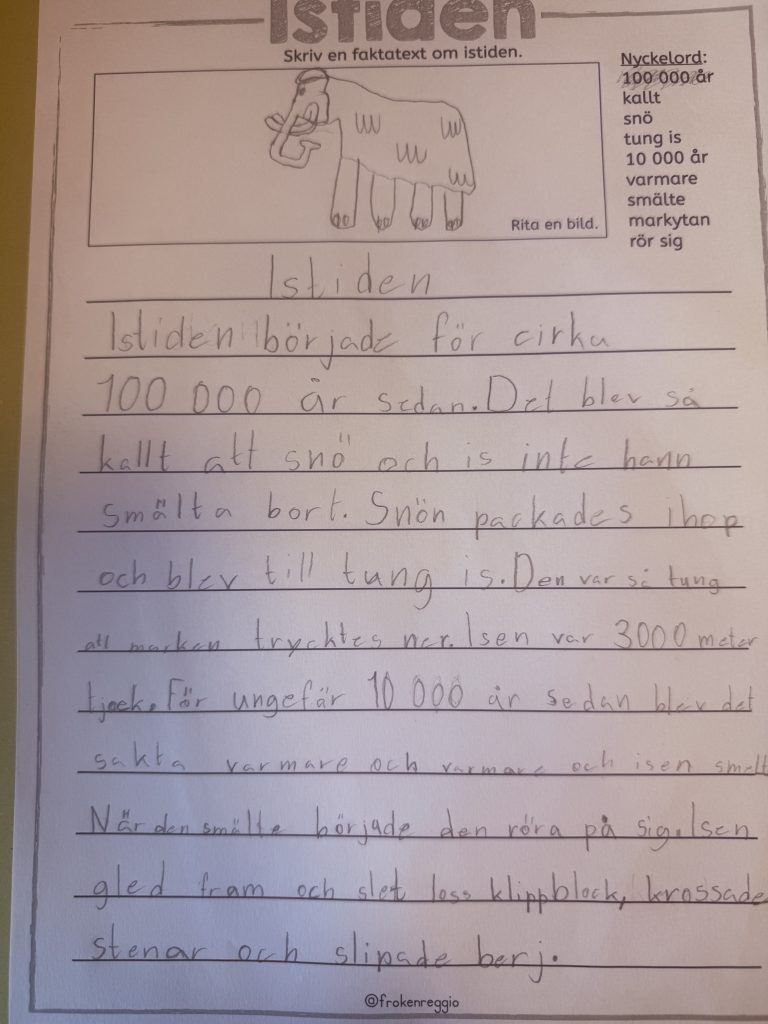 Istiden
Skriv en faktatext om istiden.
Nyckelord:
100 000 år
kallt
snö
tung is
10 000 år
varmare
smälte
markytan
rör sig
Rita en bild.
Istiden
Istiden började för cirka
100 000 år sedan. Det blev så
kallt att snö och is inte hann
smälta bort. Snön packades ihop
och blev till tung is. Den var så tung
att marken trycktes ner. Isen var 3000 meter
tjock. För ungefär 10 000 år sedan blev det
sakta varmare och varmare och isen smält
När den smälte började den röra på sig. Isen
gled fram och slet loss klippblock, krossade
stenar och slipade berj.
@frokenreggio